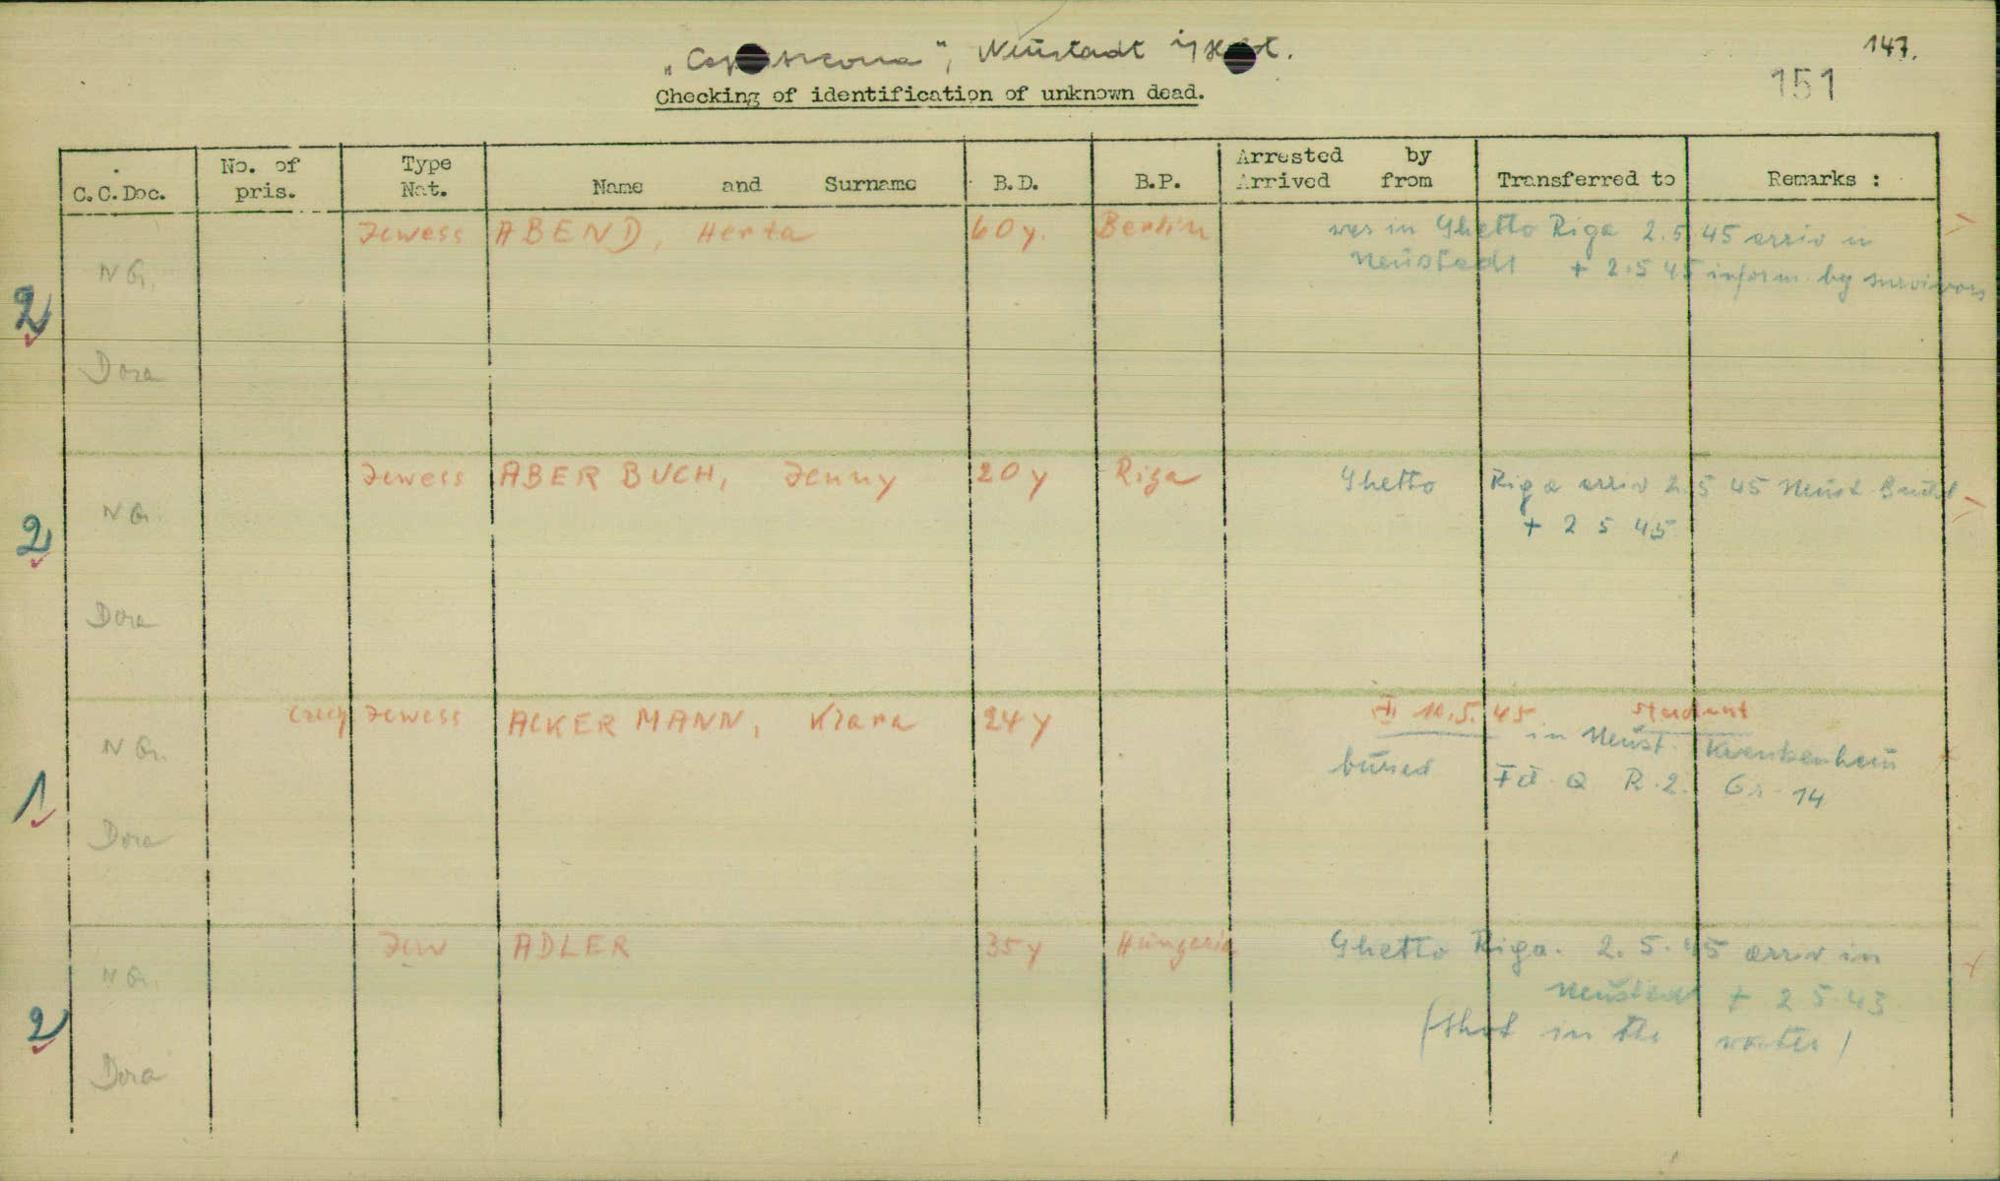 „Cap Arcona", Neustadt i/Holst.
147.
151
Checking of identification of unknown dead.
C.C.Doc.
No. of pris.
Type Nat.
Name and Surname
B.D.
B.P.
Arrested by
Arrived from
Transferred to
Remarks :
Jewess ABEND, Herta 60 y. Berlin was in Ghetto Riga 2.5 45 arriv in
N G. Neustadt + 2.5 45 inform. by survivors
2
Dora
Jewess ABERBUCH, Jenny 20 y Riga Ghetto Riga arriv 2 5 45 Neust
N G. + 2 5 45
2
Dora
Jewess ACKERMANN, Klara 24 y 10.5.45 student
N G. in Neust.
buried Fd Q R.2. Gr. 14
1
Dora
Jew ADLER 35 y Hungaria Ghetto Riga. 2. 5. 45 arriv in
N G. Neustadt + 2 5 45
2 (shot in the water)
Dora